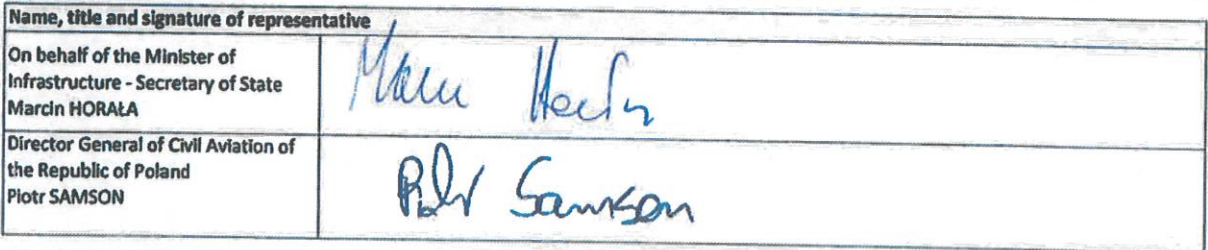 Name, title and signature of representative
On behalf of the Minister of
Infrastructure - Secretary of State
Marcin HORAŁA
Director General of Civil Aviation of
the Republic of Poland
Piotr SAMSON
Piotr Samson